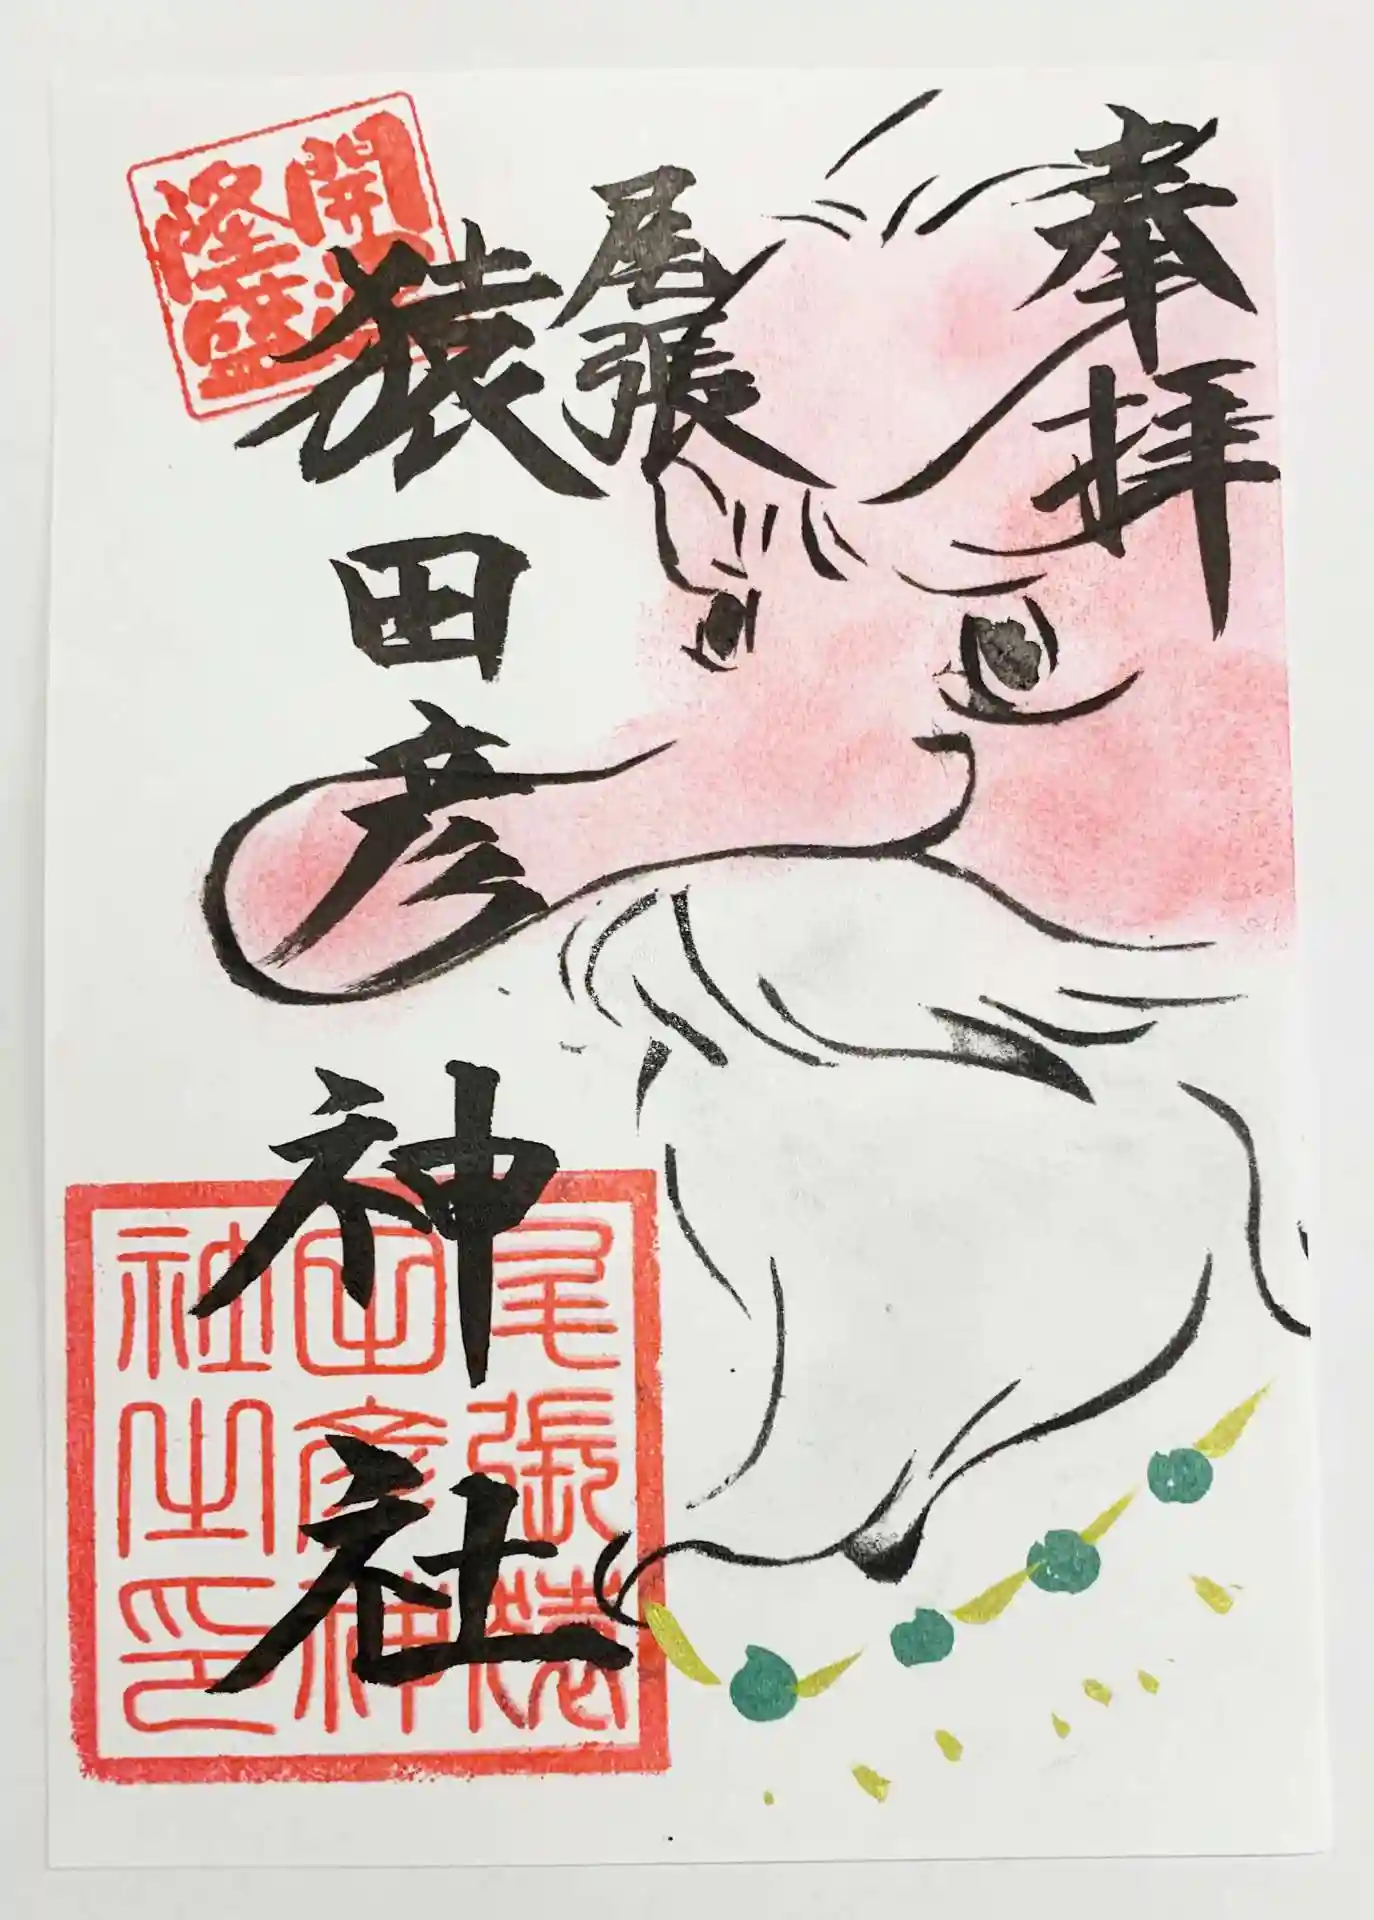 奉拝
尾張
猿田彦神社
開運
隆盛
尾張猿
田彦神
社之印